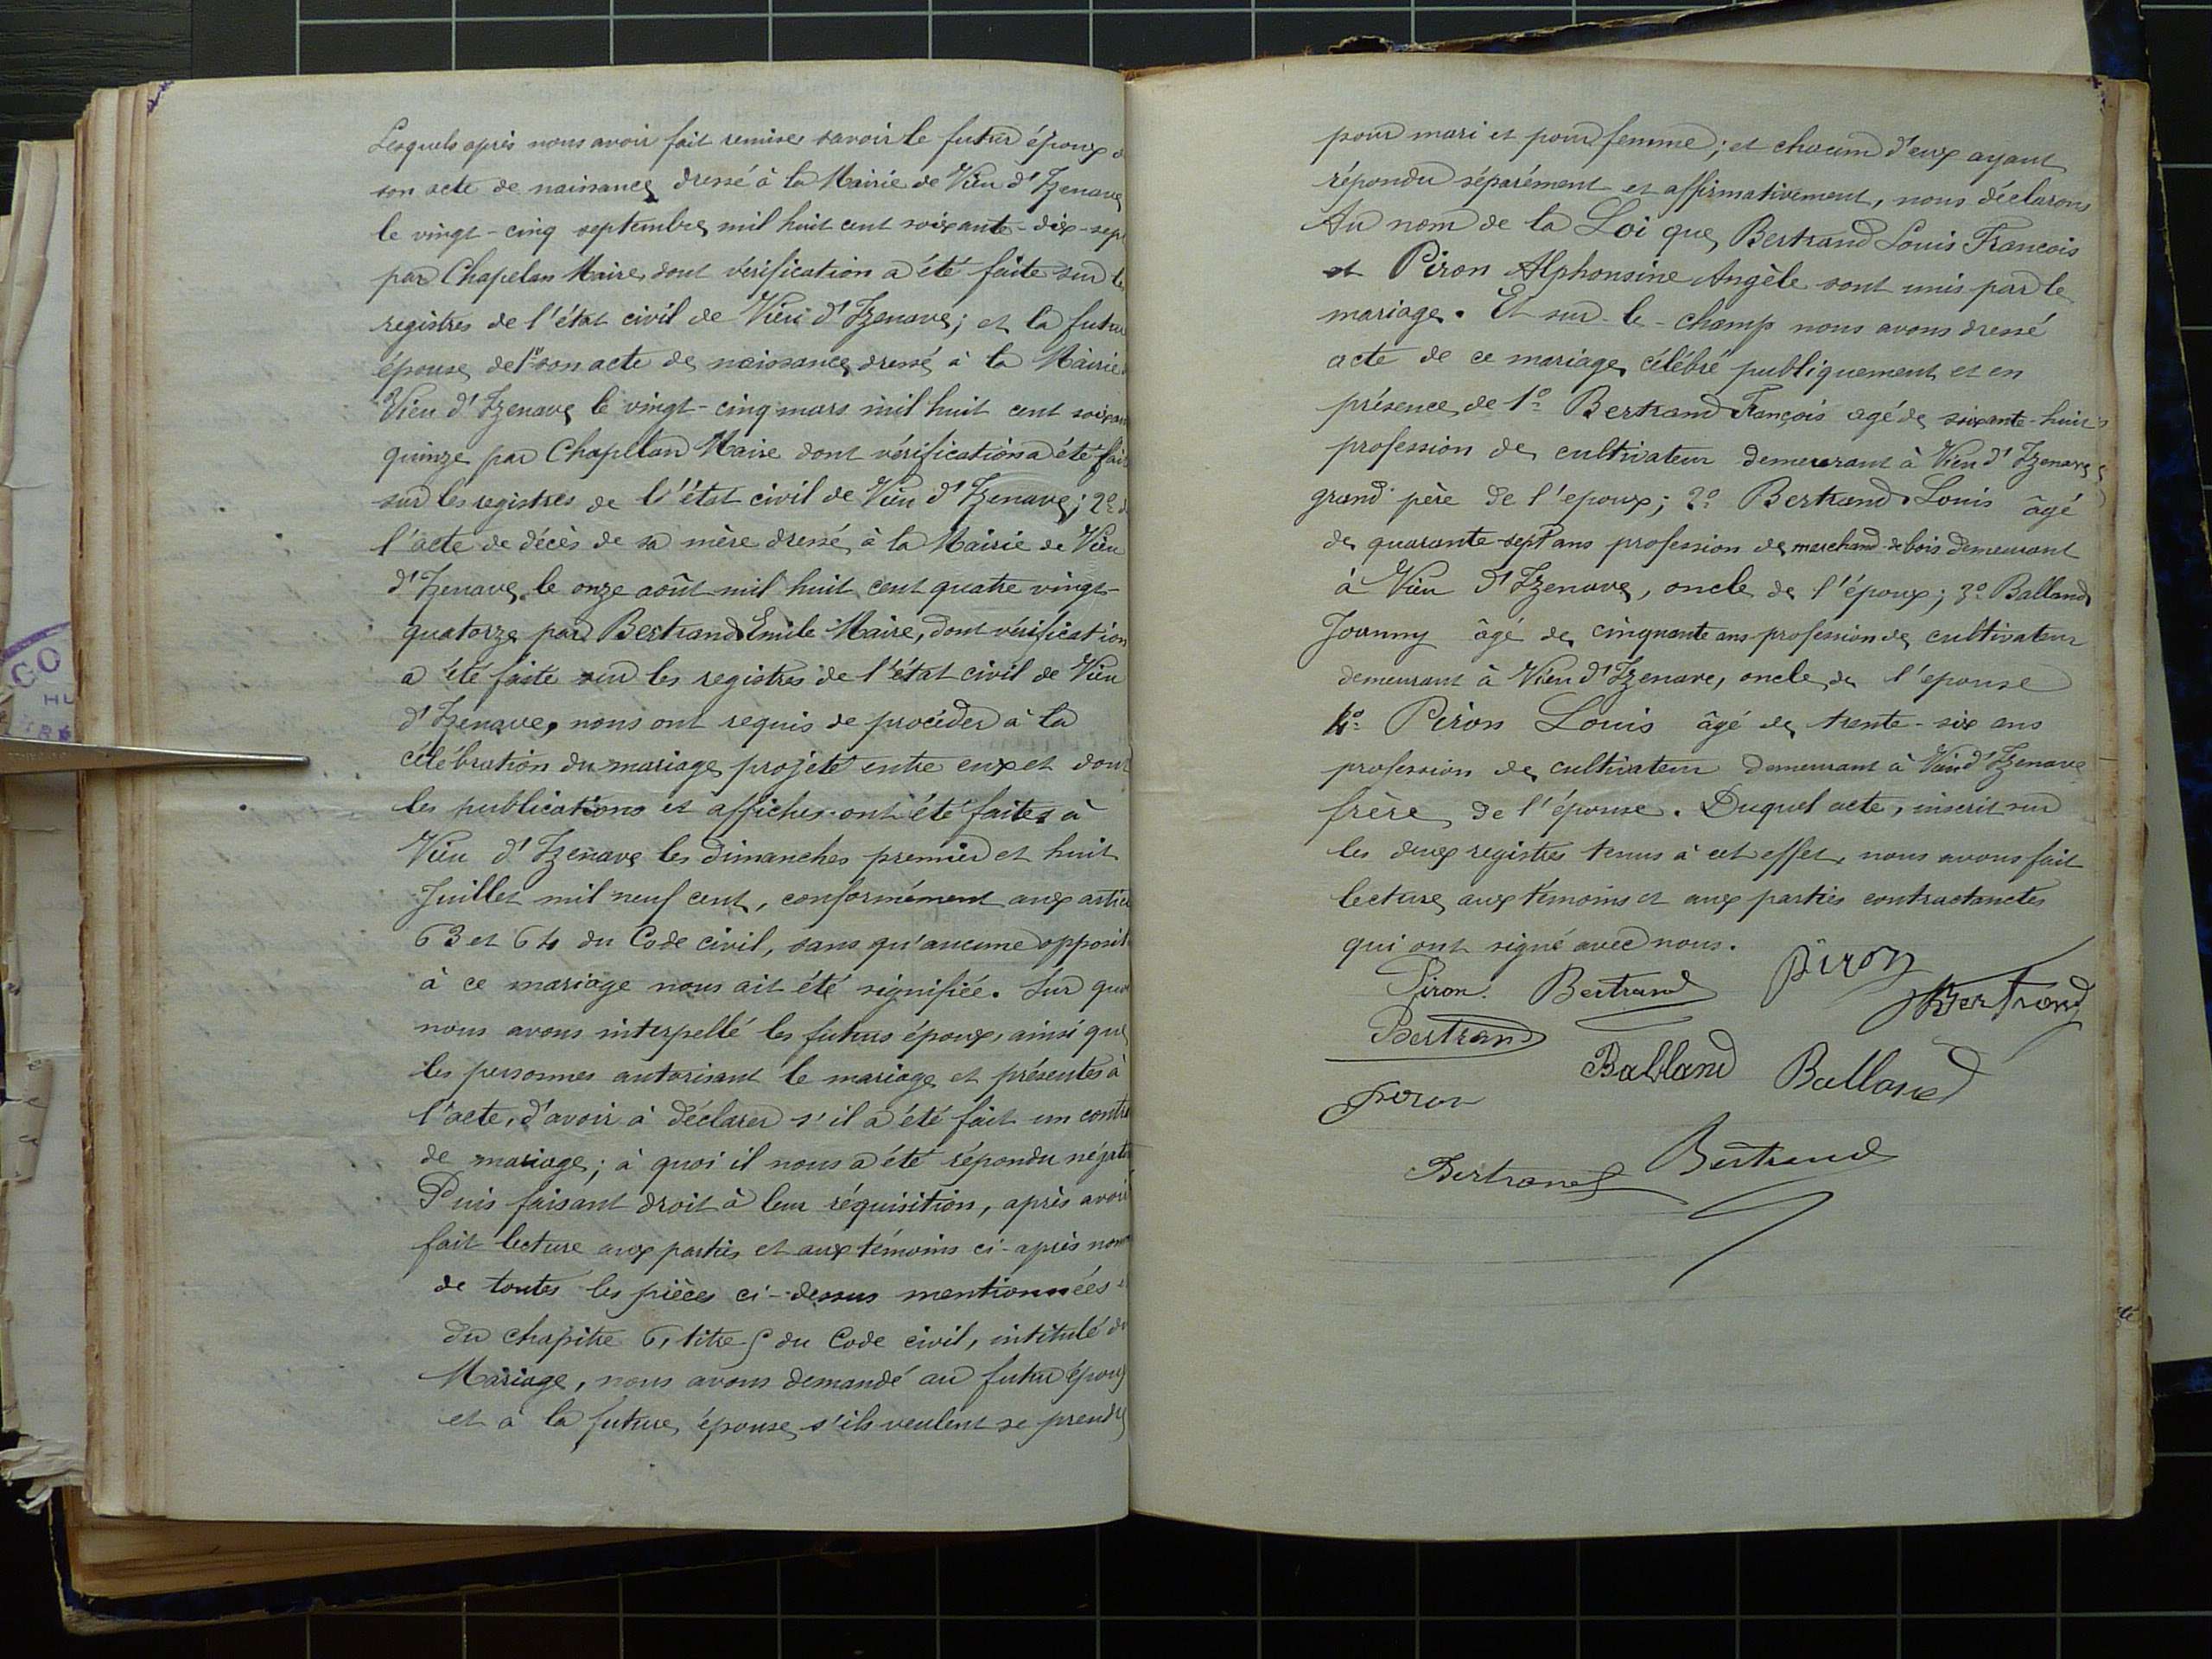 Lesquels après nous avoir fait remise savoir le futur époux d
son acte de naissance dressé à la Mairie de Vieu d'Izenave
le vingt-cinq septembre mil huit cent soixante-dix-sept
par Chapelan Maire dont vérification a été faite sur le
registres de l'état civil de Vieu d'Izenave; et la futur
épouse de 1º son acte de naissance dressé à la Mairie
Vieu d'Izenave le vingt-cinq mars mil huit cent soixan
quinze par Chapellan Maire dont vérification a été fait
sur les registres de l'état civil de Vieu d'Izenave; 2º d
l'acte de décès de sa mère dressé à la Mairie de Vieu
d'Izenave le onze août mil huit cent quatre vingt-
quatorze par Bertrand Emile Maire, dont vérification
a été faite sur les registres de l'état civil de Vieu
d'Izenave, nous ont requis de procéder à la
célébration du mariage projeté entre eux et dont
les publications et affiches ont été faites à
Vieu d'Izenave les dimanches premier et huit
Juillet mil neuf cent, conformément aux artic
63 et 64 du Code civil, sans qu'aucune opposit
à ce mariage nous ait été signifiée. Sur quo
nous avons interpellé les futurs époux, ainsi que
les personnes autorisant le mariage et présentes à
l'acte, d'avoir à déclarer s'il a été fait un contra
de mariage; à quoi il nous a été répondu négati
Puis faisant droit à leur réquisition, après avoir
fait lecture aux parties et aux témoins ci-après nom
de toutes les pièces ci-dessus mentionnées
du chapitre 6, titre 5 du Code civil, intitulé du
Mariage, nous avons demandé au futur époux
et à la future épouse s'ils veulent se prendre
pour mari et pour femme; et chacun d'eux ayant
répondu séparément et affirmativement, nous déclarons
Au nom de la Loi que Bertrand Louis Francois
et Piron Alphonsine Angèle sont unis par le
mariage. Et sur-le-champ nous avons dressé
acte de ce mariage célébré publiquement et en
présence de 1º Bertrand François agé de soixante-huit
profession de cultivateur demeurant à Vieu d'Izenave
grand père de l'epoux; 2º Bertrand Louis âgé
de quarante-sept ans profession de marchand de bois demeurant
à Vieu d'Izenave, oncle de l'époux; 3º Balland
Joanny âgé de cinquante ans profession de cultivateur
demeurant à Vieu d'Izenave, oncle de l'epouse
4º Piron Louis âgé de trente-six ans
profession de cultivateur demeurant à Vieu d'Izenave
frère de l'épouse. Duquel acte, inscrit sur
les deux registres tenus à cet effet, nous avons fait
lecture aux témoins et aux parties contractantes
qui ont signé avec nous.
Piron Bertrand piron Bertrand
Bertrand
Balland Balland
piron
Bertrand Bertrand
CO